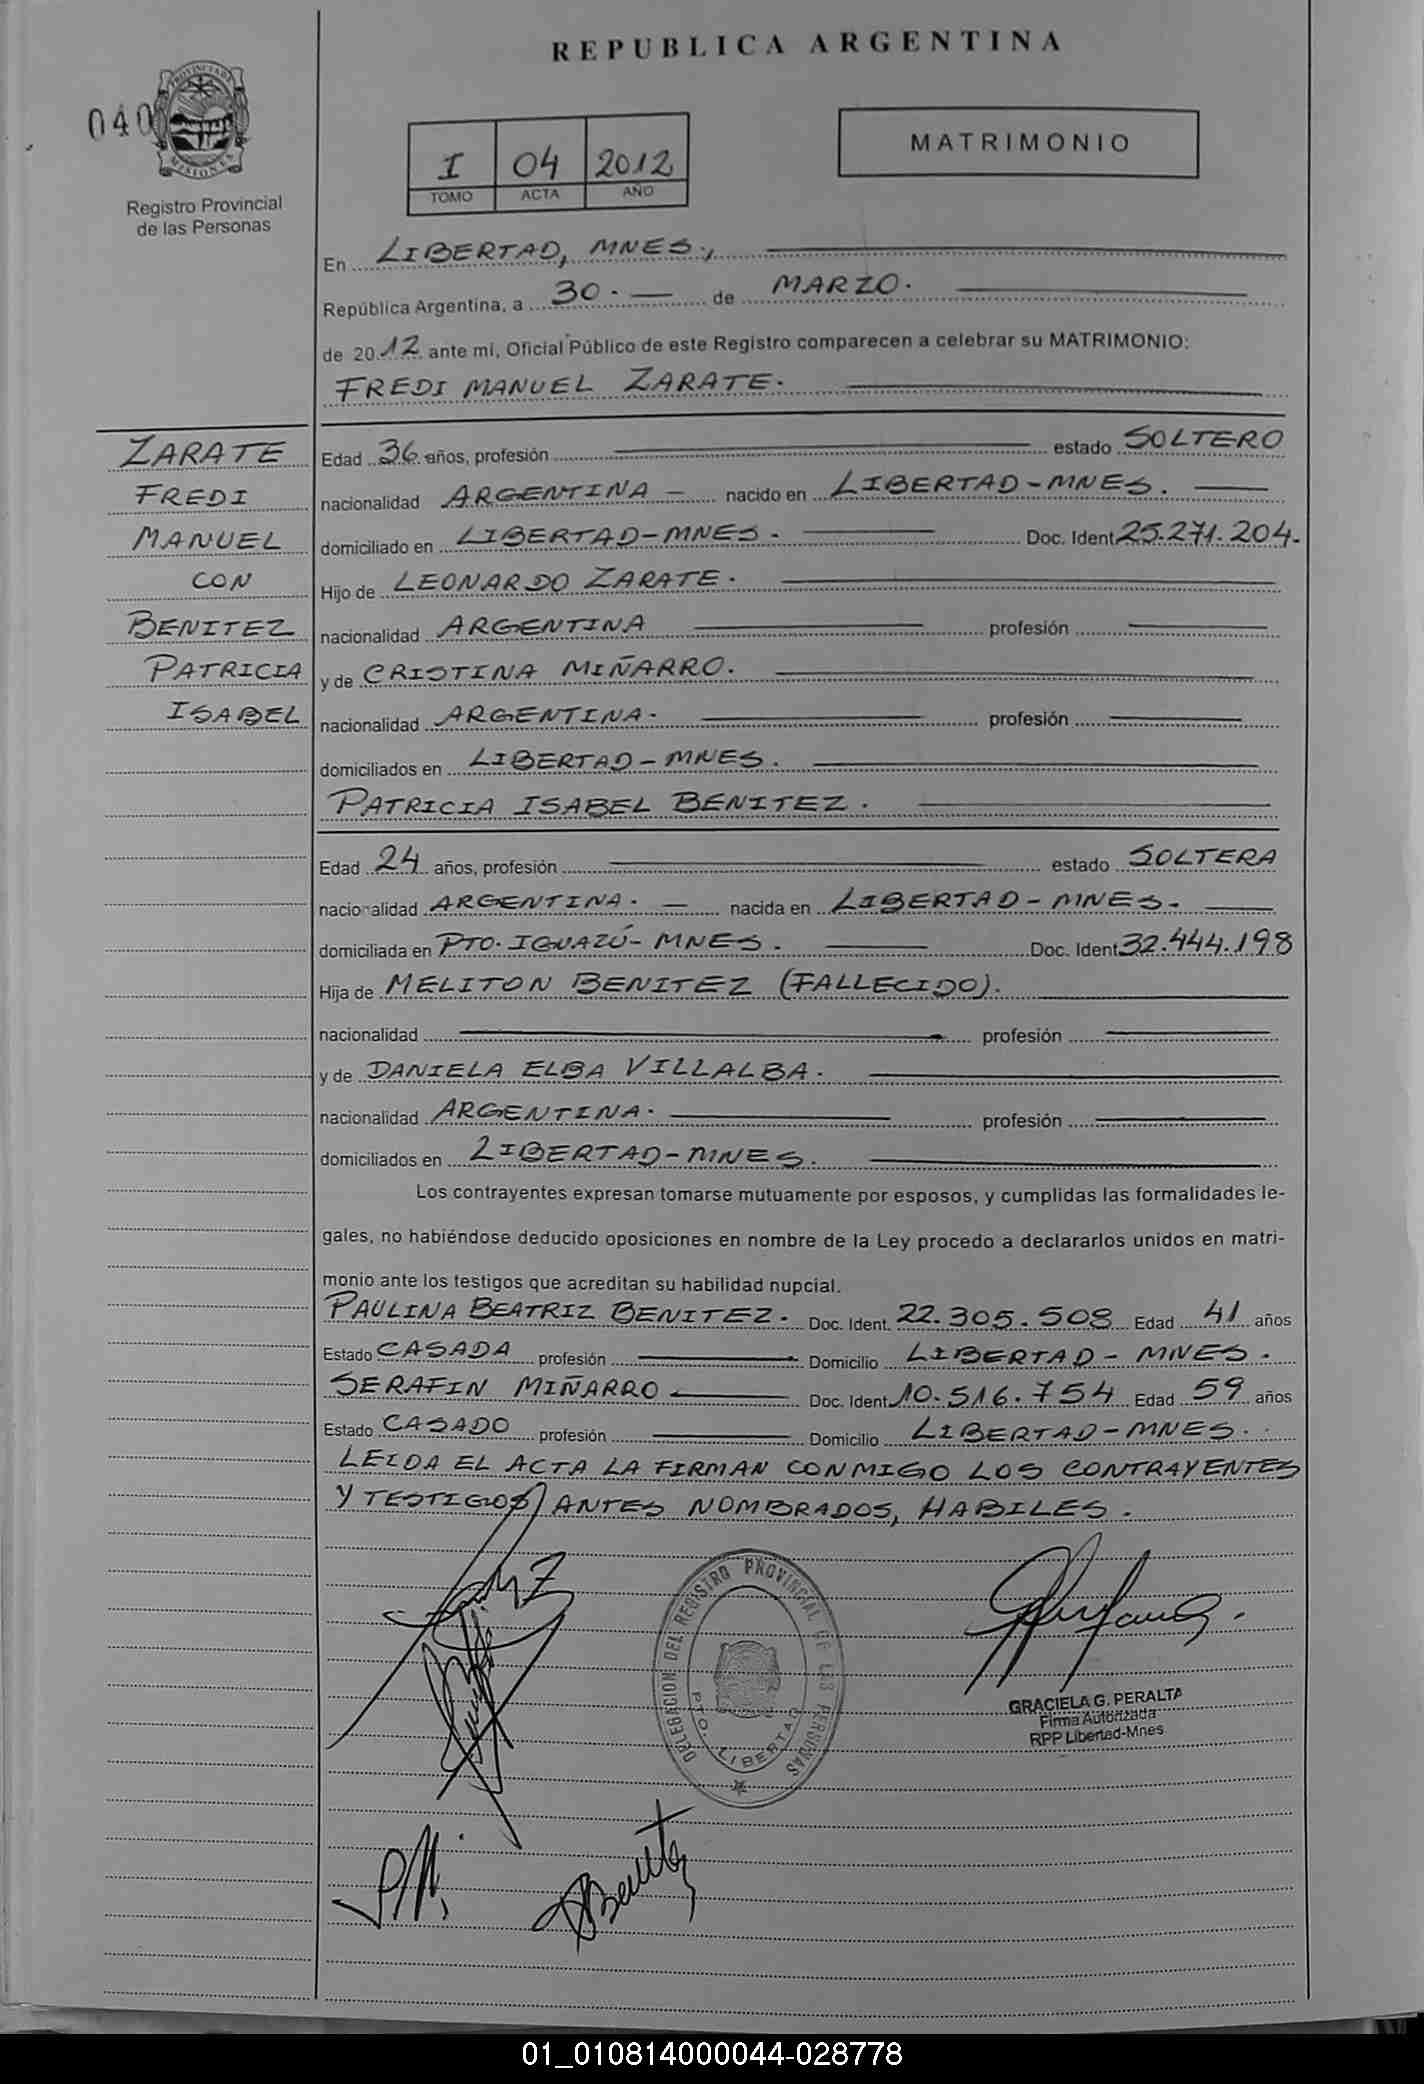 REPUBLICA ARGENTINA
040
PROVINCIA DE MISIONES
Registro Provincial
de las Personas
I 04 2012
TOMO ACTA AÑO
MATRIMONIO
En LIBERTAD, MNES.,
República Argentina, a 30.- de MARZO.
de 2012 ante mi, Oficial Público de este Registro comparecen a celebrar su MATRIMONIO:
FREDI MANUEL ZARATE.
ZARATE
FREDI
MANUEL
CON
BENITEZ
PATRICIA
ISABEL
Edad 36 años, profesión estado SOLTERO
nacionalidad ARGENTINA - nacido en LIBERTAD-MNES.
domiciliado en LIBERTAD-MNES. Doc. Ident 25.271.204.
Hijo de LEONARDO ZARATE.
nacionalidad ARGENTINA profesión
y de CRISTINA MIÑARRO.
nacionalidad ARGENTINA. profesión
domiciliados en LIBERTAD-MNES.
PATRICIA ISABEL BENITEZ.
Edad 24 años, profesión estado SOLTERA
nacionalidad ARGENTINA. - nacida en LIBERTAD-MNES.
domiciliada en PTO. IGUAZÚ-MNES. Doc. Ident 32.444.198
Hija de MELITON BENITEZ (FALLECIDO).
nacionalidad profesión
y de DANIELA ELBA VILLALBA.
nacionalidad ARGENTINA. profesión
domiciliados en LIBERTAD-MNES.
Los contrayentes expresan tomarse mutuamente por esposos, y cumplidas las formalidades le-
gales, no habiéndose deducido oposiciones en nombre de la Ley procedo a declararlos unidos en matri-
monio ante los testigos que acreditan su habilidad nupcial.
PAULINA BEATRIZ BENITEZ. Doc. Ident. 22.305.508 Edad 41 años
Estado CASADA profesión Domicilio LIBERTAD-MNES.
SERAFIN MIÑARRO Doc. Ident 10.516.754 Edad 59 años
Estado CASADO profesión Domicilio LIBERTAD-MNES.
LEIDA EL ACTA LA FIRMAN CONMIGO LOS CONTRAYENTES
Y TESTIGOS ANTES NOMBRADOS, HABILES.
DELEGACION DEL REGISTRO PROVINCIAL DE LAS PERSONAS
PTO. LIBERTAD
GRACIELA G. PERALTA
Firma Autorizada
RPP Libertad-Mnes
01_010814000044-028778